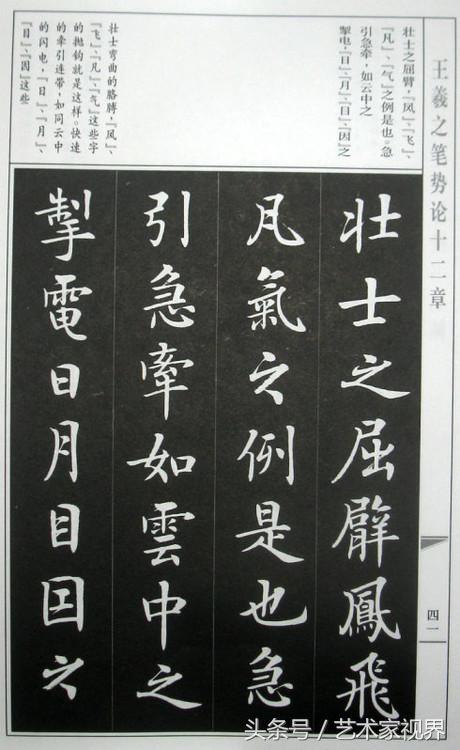 王羲之笔势论十二章
壮士之屈臂,『凤』、『飞』、
『凡』、『气』之例是也。急
引急牵,如云中之
掣电,『日』、『月』、『目』、『因』之
壮士弯曲的胳膊,『凤』、
『飞』、『凡』、『气』这些字
的抛钩就是这样。快速
的牵引连带,如同云中
的闪电,『日』、『月』、
『目』、『因』这些
壮士之屈臂鳳飛
凡氣之例是也急
引急牽如雲中之
掣電日月目因之
四一
头条号/艺术家视界